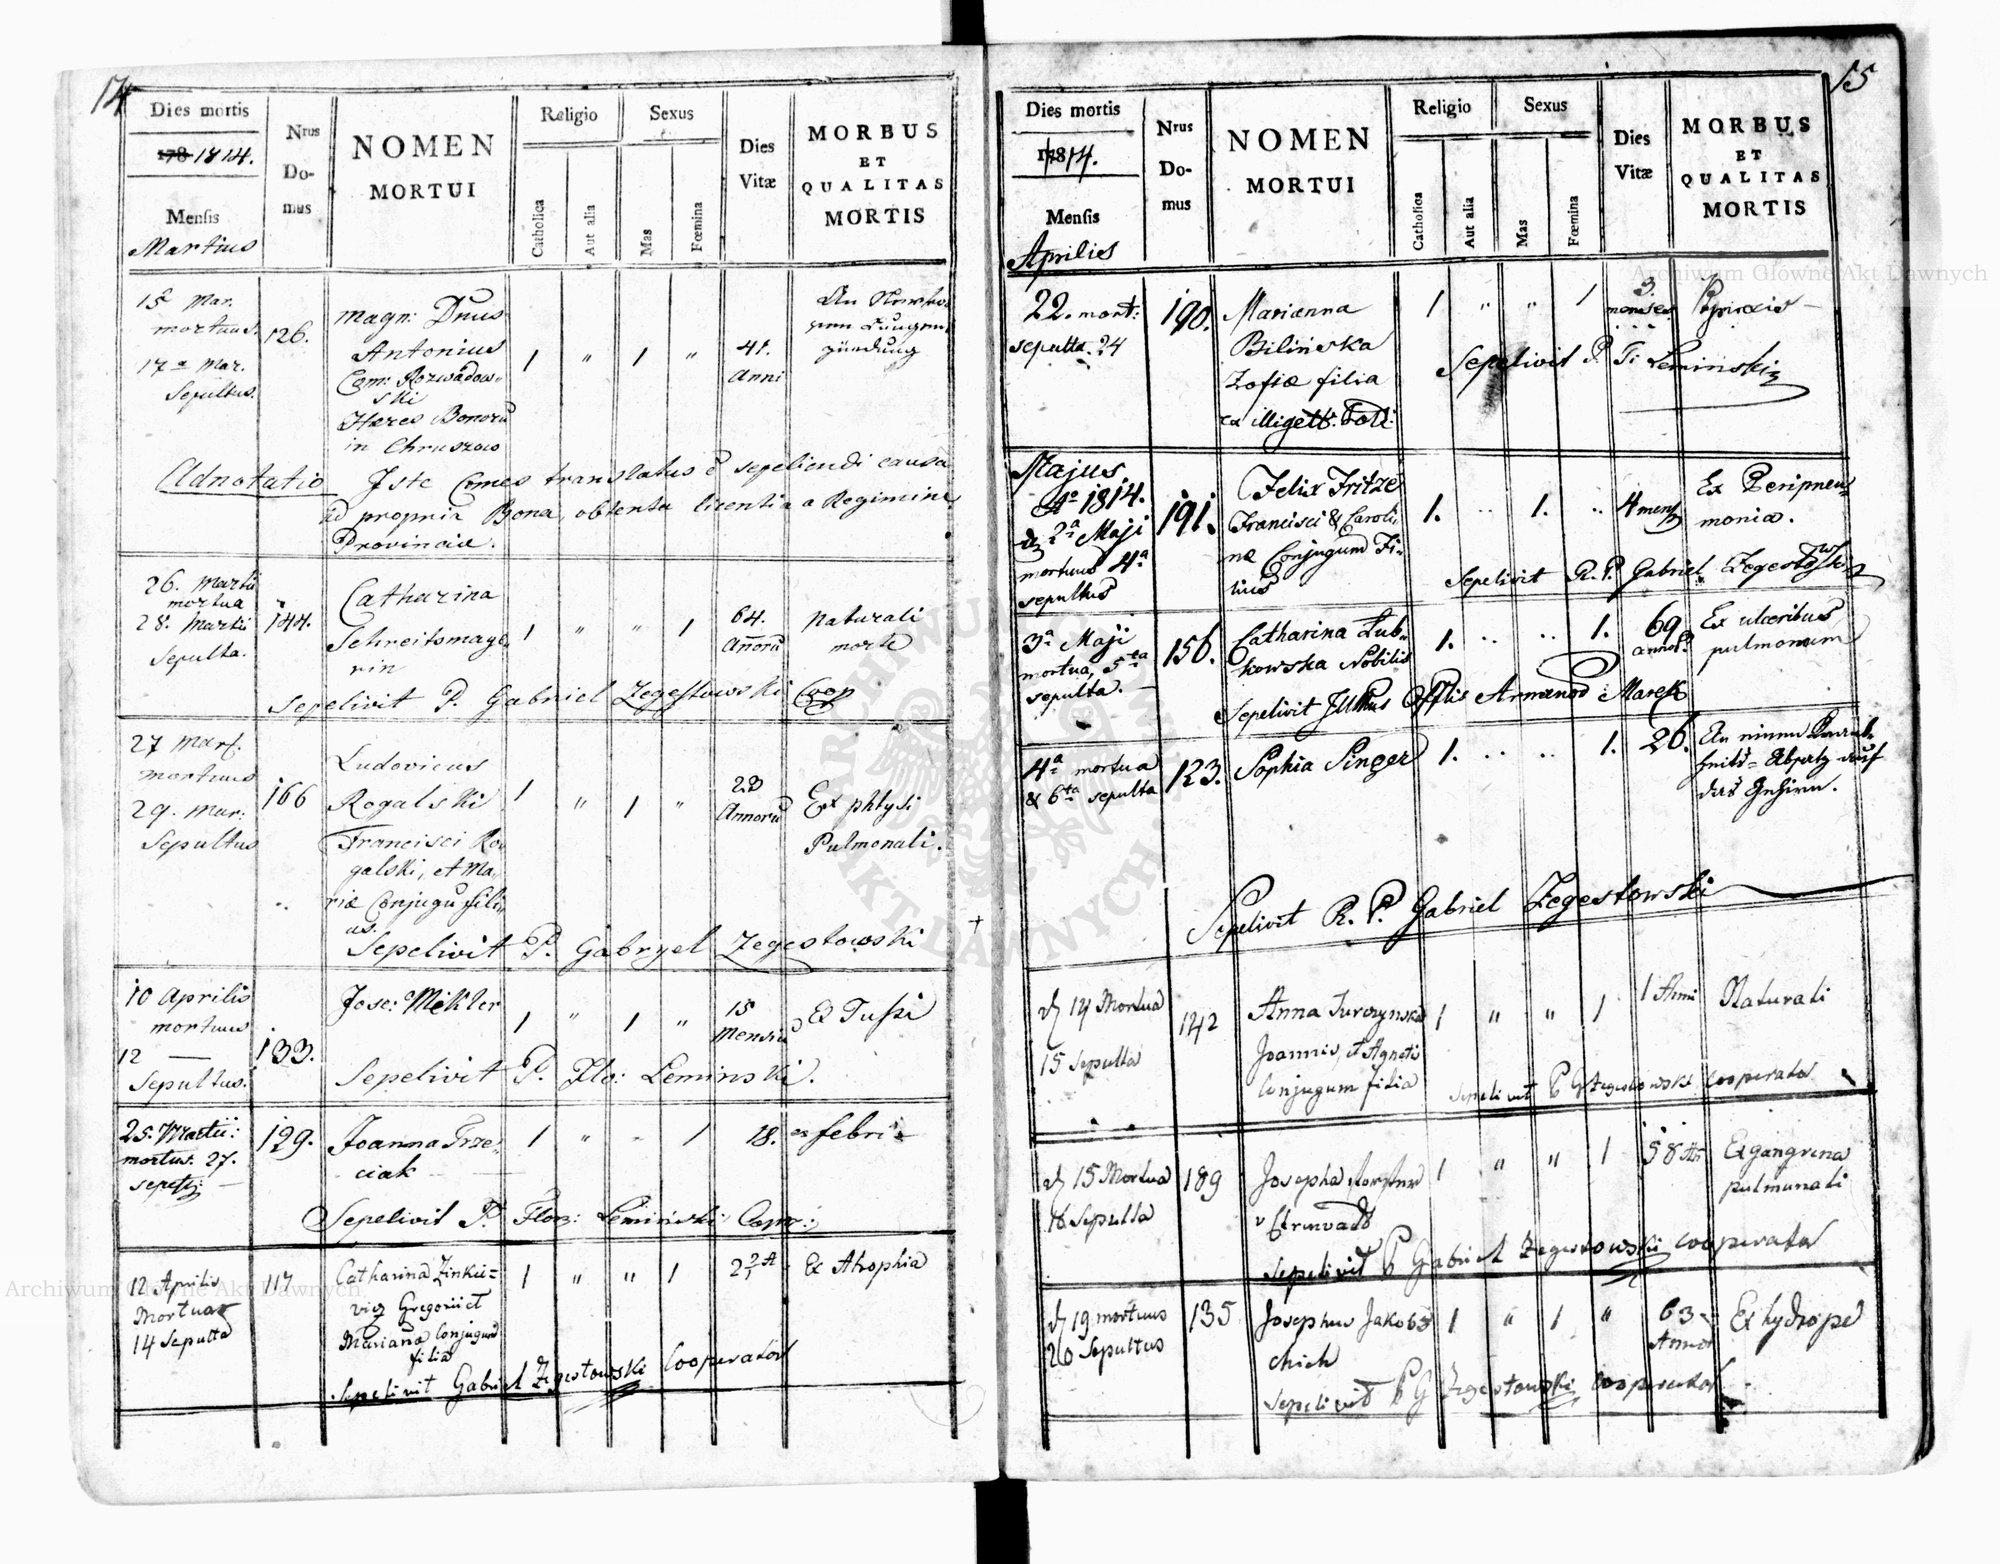 14
Dies mortis
178 1814.
Mensis
Martius
Nrus
Do-
mus
NOMEN
MORTUI
Religio
Catholica
Aut alia
Sexus
Mas
Fœmina
Dies
Vitæ
MORBUS
ET
QUALITAS
MORTIS
15ª Mar.
mortuus.
17ª Mar.
Sepultus.
126.
Magn: Dnus
Antonius
Com: Rozwadow-
ski
Hæres Bonorū
in Chruszow
1 " 1 "
41.
Anni
An
Lungen
zündung
Adnotatio Iste Comes translatus ē sepeliendi causa
ad propria Bona, obtenta licentia a Regimine
Provinciæ.
26. Martii
mortua
28. Martii
Sepulta.
144.
Catharina
Schreitsmage-
rin
1 " " 1
64.
Annorū
Naturali
morte
Sepelivit P. Gabriel Zegestowski Coop
27 Mart.
mortuus
29. Mar:
Sepultus
166
Ludovicus
Rogalski
Francisci Ro-
galski, et Ma-
riæ Conjugū fili-
us.
1 " 1 "
23
Annorū
Ex phtysi
Pulmonali.
Sepelivit P. Gabryel Zegestowski
10 Aprilis
mortuus
12 —
Sepultus.
133.
Jose: Mekler
1 " 1 "
15
Mensiū
Ex Tussi
Sepelivit P. Flo: Leminski.
25. Martii:
mortus. 27.
129.
Joanna Trze-
ciak
1 " - 1
18.
ex febri
Sepelivit P. Flor: Leminski Coop:
12 Aprilis
Mortua
14 Sepulta
117
Catharina Zinkie-
vicz Gregorii et
Mariana Conjugum
filia
1 " " 1
2
Ex Atrophia
Sepelivit Gabriel Zegestowski Cooperator
15
Dies mortis
1814.
Mensis
Aprilies
Nrus
Do-
mus
NOMEN
MORTUI
Religio
Catholica
Aut alia
Sexus
Mas
Fœmina
Dies
Vitæ
MORBUS
ET
QUALITAS
MORTIS
22. mort:
sepulta. 24
190.
Marianna
Bilińska
Zofiæ filia
ex illigett. Tolt:
1 " " 1
3.
menses
Sepelivit P. F: Leminski
Majus
Aº 1814.
2ª Maji
mortuus 4ª
sepultus
191.
Felix Fritze
Francisci & Caroli-
næ Conjugum Fi-
lius
1. .. 1. ..
4 mens
Ex Peripneu-
monia.
Sepelivit R. P. Gabriel Zegestowski
3ª Maji
mortua, 5ta
sepulta. —
156.
Catharina Lub-
kowska Nobilis
1. .. .. 1.
69
annor
Ex ulceribus
pulmonum
Sepelivit Offlis Armenor: Marek
4ª mortua
& 6ta sepulta
123.
Sophia Singer
1. .. .. 1.
26.
An einem
auf
das Gehirn.
Sepelivit R. P. Gabriel Zegestowski
14 Mortua
15 Sepulta
142
Anna Turczynska
Joannis, et Agneti
Conjugum filia
1 " " 1
1 Anni
Naturali
Sepelivit P G Zegestowski Cooperator
15 Mortua
16 Sepulta
189
Josepha
1 " " 1
58
Ex gangrena
pulmunali
Sepelivit P Gabriel Zegestowski Cooperator
19 mortuus
20 Sepultus
135
Josephus Jakobo-
chich
1 " 1 "
63
Annor
Ex hydrope
Sepelivit P G Zegestowski Cooperator
Archiwum Główne Akt Dawnych
Archiwum Główne Akt Dawnych
ARCHIWUM GŁÓWNE AKT DAWNYCH